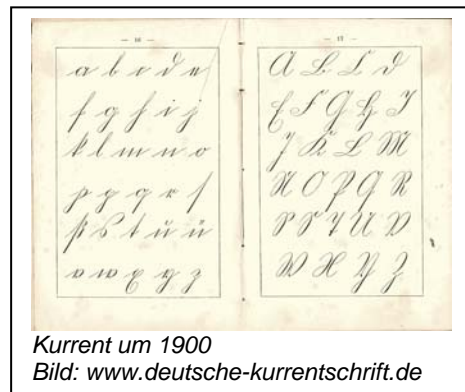 — 16 —
a b c d e
f g h i j
k l m n o
p q r ſ
ß s t u ü
v w x y z
— 17 —
A B C D
E F G H I
J K L M
N O P Q R
S S T U V
W X Y Z
Kurrent um 1900
Bild: www.deutsche-kurrentschrift.de